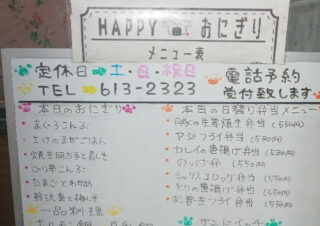 HAPPY おにぎり
メニュー表
定休日 土・日・祝日
TEL 613-2323
電話予約
受付致します
本日のおにぎり
まぐろこんぶ
さけのまかごはん
ピリ辛こんぶ
たまごとわかめ
野沢菜と梅しそ
一品料理
本日の日替り弁当メニュー
豚の生姜焼き弁当 (550円)
アジフライ弁当 (530円)
カレイの唐揚げ弁当 (530円)
のっけ弁 (550円)
ミックスコロッケ弁当 (550円)
とりの唐揚げ弁当 (550円)
肉巻きフライ弁当 (550円)
サンドイッチ